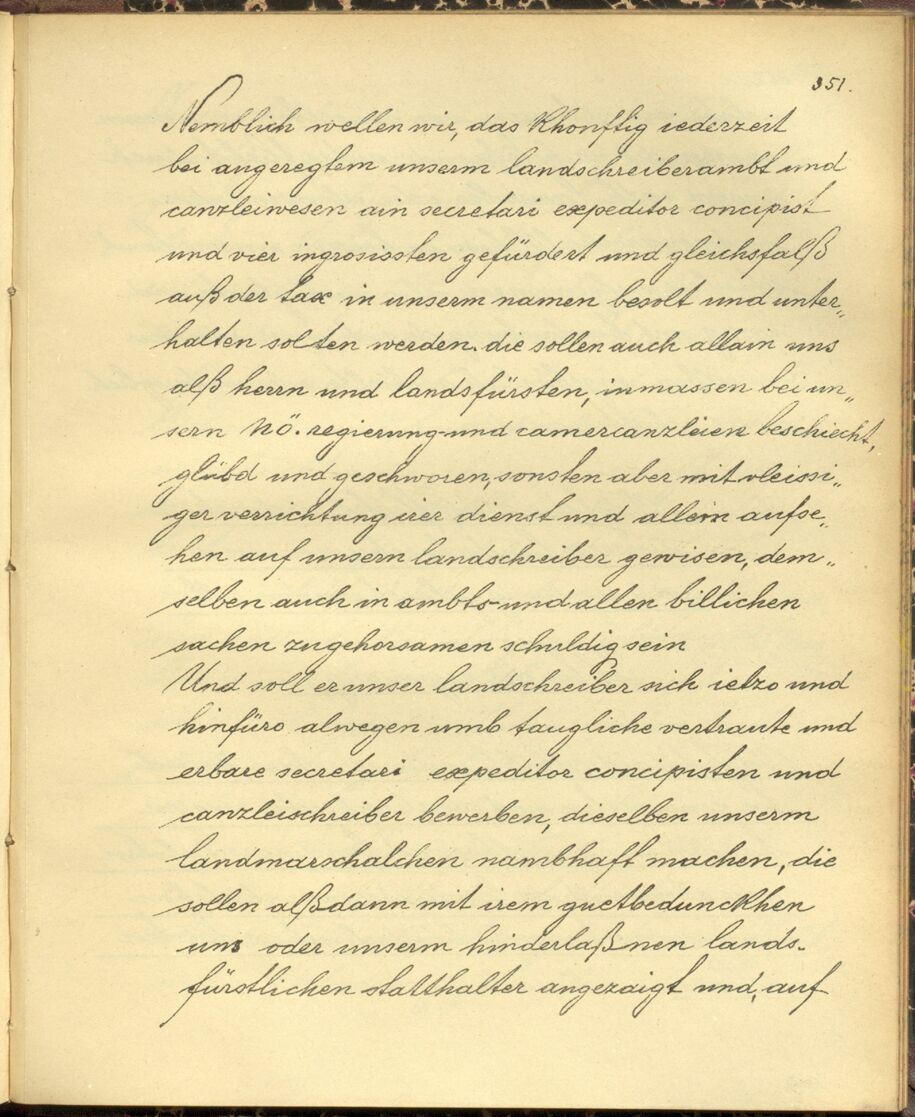 351.
Nemblich wellen wir, das khonftig iederzeit
bei angeregtem unserm landschreiberambt und
canzleiwesen ain secretari expeditor concipist
und vier ingrosissten gefürdert und gleichsfalß
auß der tax in unserm namen besolt und unter„
halten solten werden. die sollen auch allain uns
alß herrn und landsfürsten, inmassen bei un„
sern nö. regierung- und camercanzleien beschiecht,
glübd und geschworen, sonsten aber mit vleissi„
ger verrichtung irer dienst und allein aufse„
hen auf unsern landschreiber gewisen, dem„
selben auch in ambts- und allen billichen
sachen zugehorsamen schuldig sein
Und soll er unser landschreiber sich ietzo und
hinfüro alwegen umb taugliche vertraute und
erbare secretari expeditor concipisten und
canzleischreiber bewerben, dieselben unserm
landmarschalchen nambhaft machen, die
sollen alßdann mit irem guetbedunckhen
uns oder unserm hinderlaßnen lands-
fürstlichen statthalter angezaigt und, auf